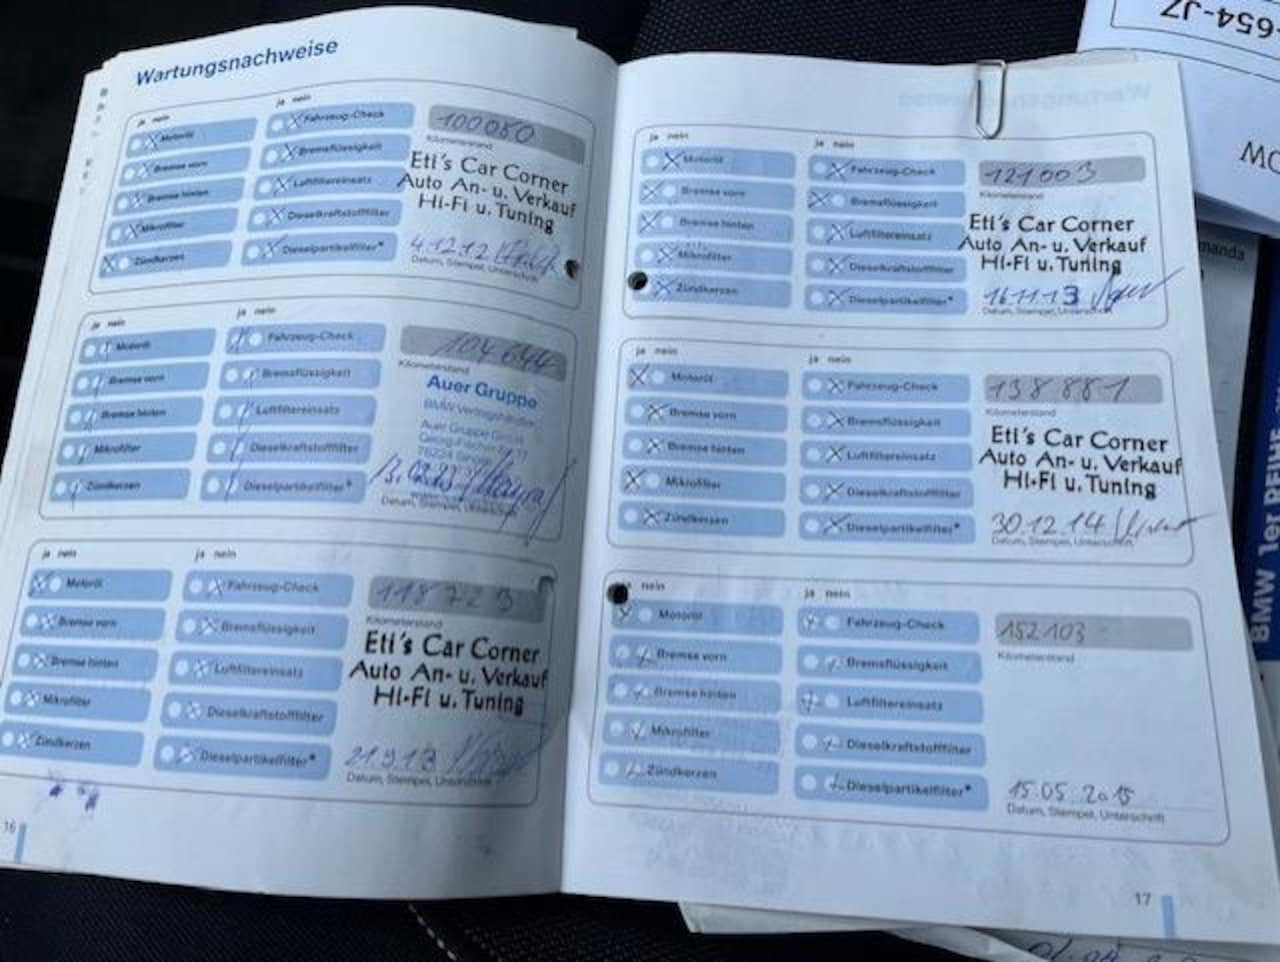 Wartungsnachweise
ja nein
Motoröl
Bremse vorn
Bremse hinten
Mikrofilter
Zündkerzen
ja nein
Fahrzeug-Check
Bremsflüssigkeit
Luftfiltereinsatz
Dieselkraftstofffilter
Dieselpartikelfilter*
100080
Kilometerstand
Eti's Car Corner
Auto An- u. Verkauf
Hi-Fi u. Tuning
4.12.12
Datum, Stempel, Unterschrift
ja nein
Motoröl
Bremse vorn
Bremse hinten
Mikrofilter
Zündkerzen
ja nein
Fahrzeug-Check
Bremsflüssigkeit
Luftfiltereinsatz
Dieselkraftstofffilter
Dieselpartikelfilter*
104644
Kilometerstand
Auer Gruppe
BMW Vertragshändler
Auer Gruppe GmbH
Datum, Stempel, Unterschrift
ja nein
Motoröl
Bremse vorn
Bremse hinten
Mikrofilter
Zündkerzen
ja nein
Fahrzeug-Check
Bremsflüssigkeit
Luftfiltereinsatz
Dieselkraftstofffilter
Dieselpartikelfilter*
118723
Kilometerstand
Eti's Car Corner
Auto An- u. Verkauf
Hi-Fi u. Tuning
21.9.13
Datum, Stempel, Unterschrift
16
ja nein
Motoröl
Bremse vorn
Bremse hinten
Mikrofilter
Zündkerzen
ja nein
Fahrzeug-Check
Bremsflüssigkeit
Luftfiltereinsatz
Dieselkraftstofffilter
Dieselpartikelfilter*
121003
Kilometerstand
Eti's Car Corner
Auto An- u. Verkauf
Hi-Fi u. Tuning
16.11.13
Datum, Stempel, Unterschrift
ja nein
Motoröl
Bremse vorn
Bremse hinten
Mikrofilter
Zündkerzen
ja nein
Fahrzeug-Check
Bremsflüssigkeit
Luftfiltereinsatz
Dieselkraftstofffilter
Dieselpartikelfilter*
138881
Kilometerstand
Eti's Car Corner
Auto An- u. Verkauf
Hi-Fi u. Tuning
30.12.14
Datum, Stempel, Unterschrift
nein
Motoröl
Bremse vorn
Bremse hinten
Mikrofilter
Zündkerzen
ja nein
Fahrzeug-Check
Bremsflüssigkeit
Luftfiltereinsatz
Dieselkraftstofffilter
Dieselpartikelfilter*
152103
Kilometerstand
15.05.2015
Datum, Stempel, Unterschrift
17
654-JZ
BMW 1er REIHE